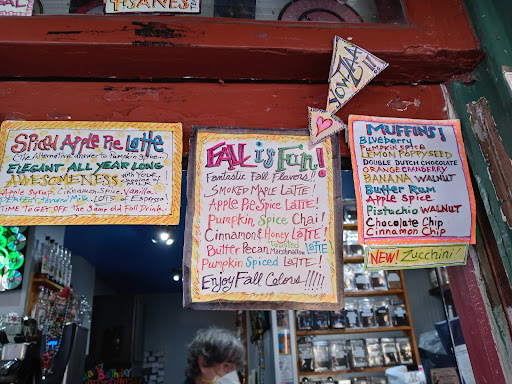 TISANES
YOWZAA!!
Spiced Apple Pie Latte
(The Alternative answer to Pumpkin Spice..
ELEGANT ALL YEAR LONG
AWESOMENESS with your MILK
Apple Syrup, Cinnamon Spice, Vanilla
Milk, LOTS of Espresso!
TIME TO GET OFF the Same old Fall Drink.
FALL is Fun!
Fantastic Fall Flavors!!
SMOKED MAPLE LATTE!
Apple Pie Spice LATTE!
Pumpkin Spice Chai!
Cinnamon & Honey LATTE!
Butter Pecan Toasted Marshmallow LATTE
Pumpkin Spiced LATTE!
Enjoy Fall Colors!!!!!
MUFFINS!
Blueberry
Pumpkin spice
LEMON POPPYSEED
DOUBLE DUTCH CHOCOLATE
ORANGE CRANBERRY
BANANA WALNUT
Butter Rum
Apple Spice
Pistachio WALNUT
Chocolate Chip
Cinnamon Chip
NEW! Zucchini!